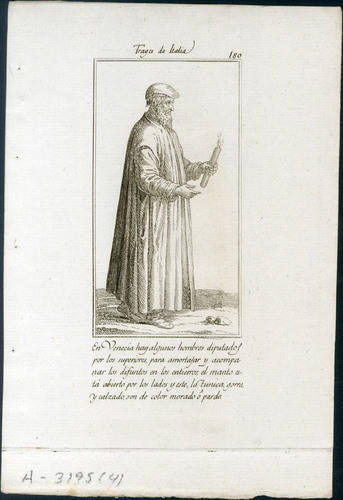 Trages de Italia
180
En Venecia hay algunos hombres diputados
por los superiores, para amortajar y acompa-
ñar los difuntos en los entierros, el manto es-
tá abierto por los lados y este, la tunica, gorra,
y calzado, son de color morado ó pardo.
A-3195(4)